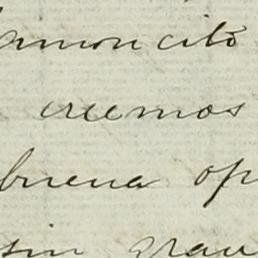 Ramoncito
creemos
buena op
sin grav